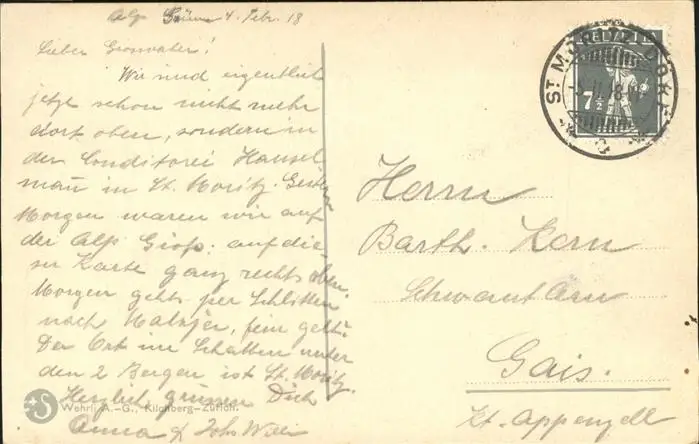 Alp Grüm 4. Febr. 18
Lieber Grossvater!
Wir sind eigentlich
jetzt schon nicht mehr
dort oben, sondern in
der Conditorei Hansel-
mann in St. Moritz. Gestern
Morgen waren wir auf
der Alp Giop. auf die-
ser Karte ganz rechts oben.
Morgen gehts per Schlitten
nach Maloja, fein gelt!
Der Ort im Schatten unter
den 2 Bergen ist St. Moritz.
Herzlich grüssen Dich
Anna &
Wehrli A.-G., Kilchberg-Zürich.
HELVETIA
7½
ST. MORITZ-DORF
Herrn
Barth. Kern
Gais.
Kt. Appenzell